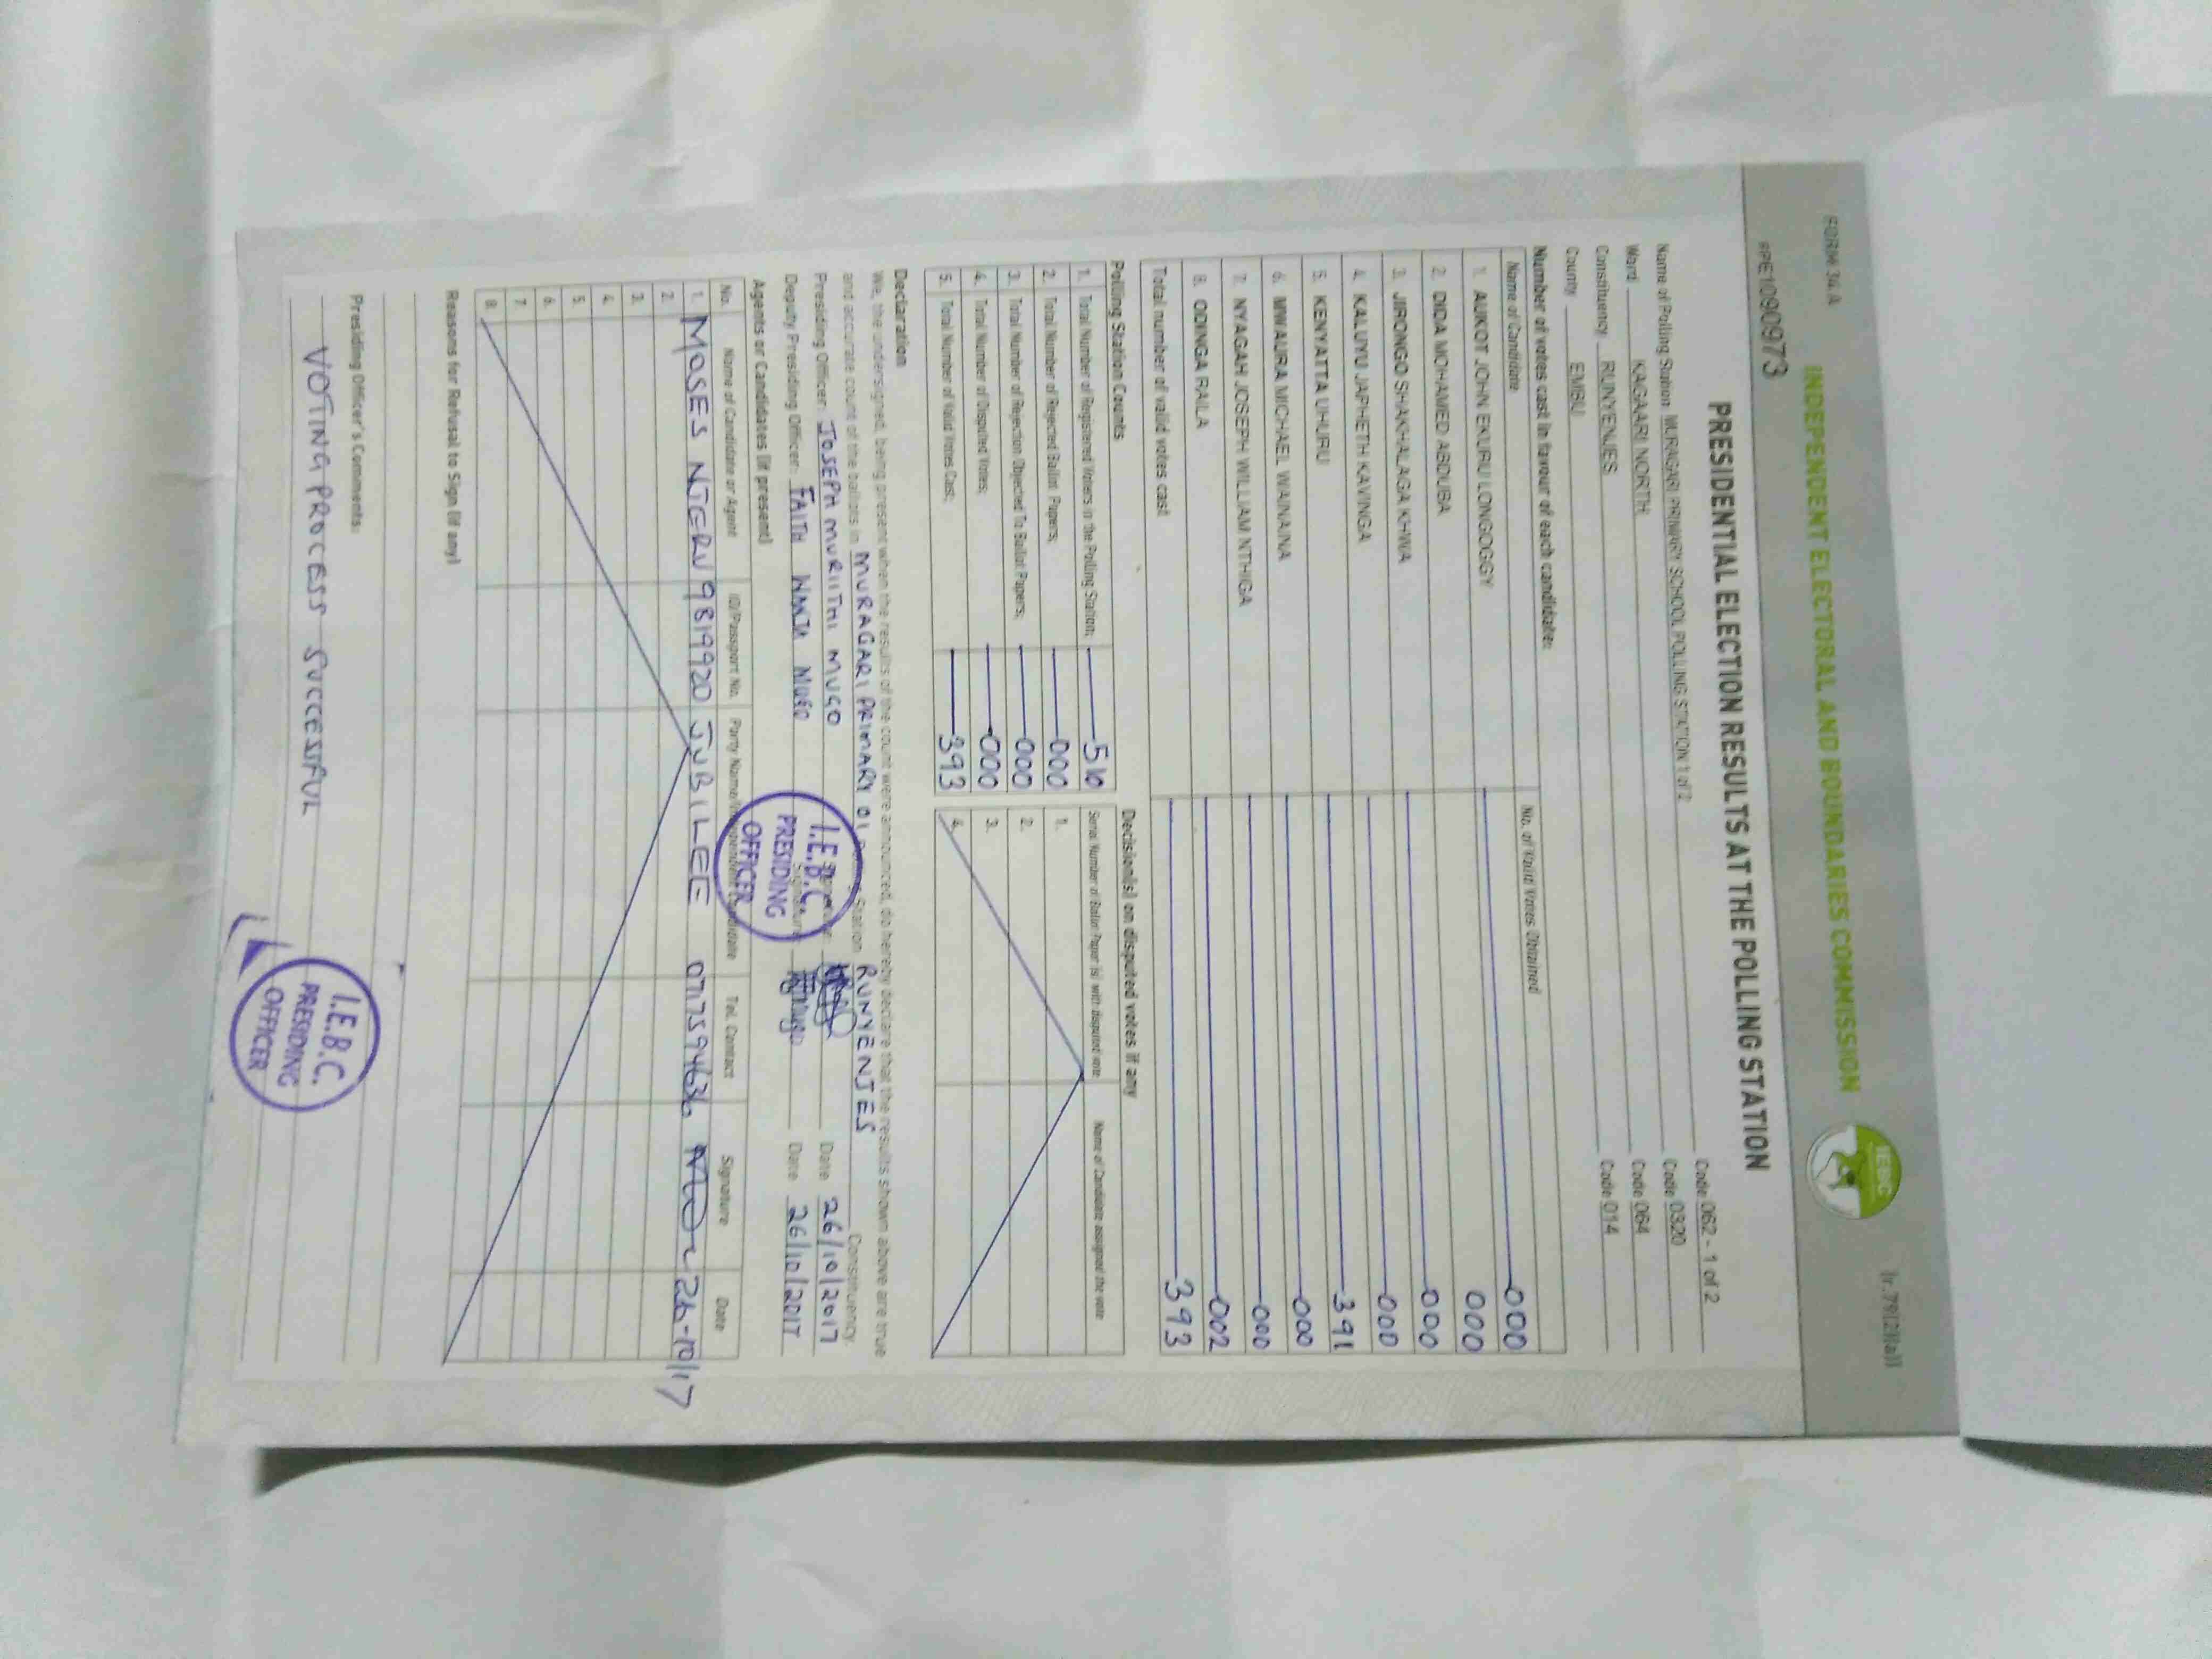 FORM 34 A
INDEPENDENT ELECTORAL AND BOUNDARIES COMMISSION
IEBC
(r.79(2)(a))
PPE1090973
PRESIDENTIAL ELECTION RESULTS AT THE POLLING STATION
Name of Polling Station MURAGARI PRIMARY SCHOOL POLLING STATION 1 of 2 Code 062 - 1 of 2
Ward KAGAARI NORTH Code 0320
Constituency RUNYENJES Code 064
County EMBU Code 014
Number of votes cast in favour of each candidate:
Name of Candidate No. of Valid Votes Obtained
1. AUKOT JOHN EKURU LONGOGGY 000
2. DIDA MOHAMED ABDUBA 000
3. JIRONGO SHAKHALAGA KHWA 000
4. KALUYU JAPHETH KAVINGA 000
5. KENYATTA UHURU 391
6. MWAURA MICHAEL WAINAINA 000
7. NYAGAH JOSEPH WILLIAM NTHIGA 000
8. ODINGA RAILA 002
Total number of valid votes cast 393
Polling Station Counts
1. Total Number of Registered Voters in the Polling Station; 510
2. Total Number of Rejected Ballot Papers; 000
3. Total Number of Rejection Objected To Ballot Papers; 000
4. Total Number of Disputed Votes; 000
5. Total Number of Valid Votes Cast; 393
Decision(s) on disputed votes if any
Serial Number of Ballot Paper (s) with disputed vote Name of Candidate assigned the vote
1.
2.
3.
4.
Declaration
We, the undersigned, being present when the results of the count were announced, do hereby declare that the results shown above are true
and accurate count of the ballots in MURAGARI PRIMARY 01 Polling Station RUNYENJES Constituency.
Presiding Officer: JOSEPH MURIITHI MUGO Signature: Date 26/10/2017
Deputy Presiding Officer: FAITH WANJA MUGO Signature: Date 26/10/2017
I.E.B.C.
PRESIDING
OFFICER
Agents or Candidates (if present)
No. Name of Candidate or Agent ID/Passport No. Party Name/Independent Candidate Tel. Contact Signature Date
1. MOSES NJERU 9819920 JUBILEE 0717594636 26-10/17
2.
3.
4.
5.
6.
7.
8.
Reasons for Refusal to Sign (if any)
Presiding Officer's Comments:
VOTING PROCESS SUCCESSFUL
I.E.B.C.
PRESIDING
OFFICER